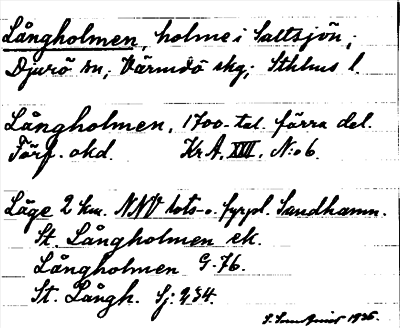 Långholmen, holme i Saltsjön;
Djurö sn; Värmdö skg; Sthlms l.
Långholmen, 1700-tal. förra del.
Förf. okd. KrA, XXII, N:o 6.
Läge 2 km. NNV lots- o. fyrpl. Sandhamn.
St. Långholmen ek.
Långholmen G. 76.
St. Långh. Sj: 234.
1935